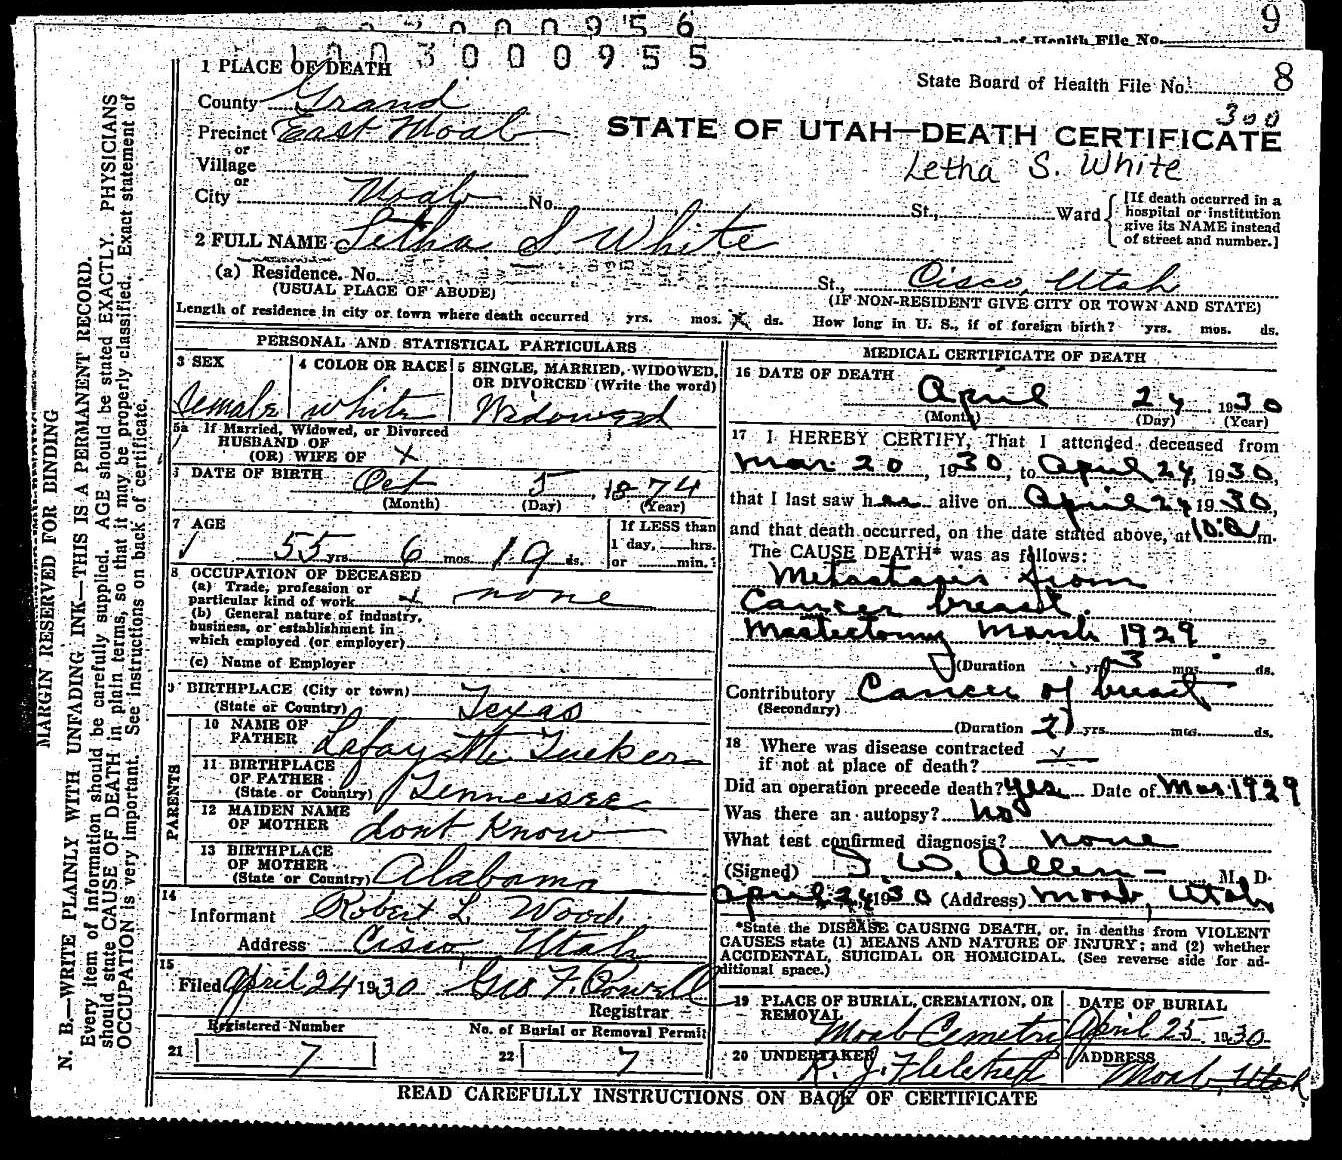 0 0 0 9 5 6
9
1 0 0 3 0 0 0 9 5 5
Board of Health File No.
State Board of Health File No. 8
300
STATE OF UTAH—DEATH CERTIFICATE
Letha S. White
1 PLACE OF DEATH
County Grand
Precinct East Moab
or
Village
or
City Moab No. St., Ward
[If death occurred in a
hospital or institution
give its NAME instead
of street and number.]
2 FULL NAME Letha S White
(a) Residence. No. St., Cisco, Utah
(USUAL PLACE OF ABODE) (IF NON-RESIDENT GIVE CITY OR TOWN AND STATE)
Length of residence in city or town where death occurred yrs. mos. x ds. How long in U. S., if of foreign birth? yrs. mos. ds.
PERSONAL AND STATISTICAL PARTICULARS
3 SEX
female
4 COLOR OR RACE
white
5 SINGLE, MARRIED, WIDOWED,
OR DIVORCED (Write the word)
Widowed
5a If Married, Widowed, or Divorced
HUSBAND OF
(OR) WIFE OF x
6 DATE OF BIRTH Oct 5, 1874
(Month) (Day) (Year)
7 AGE
55 yrs. 6 mos. 19 ds.
If LESS than
1 day, hrs.
or min.
8 OCCUPATION OF DECEASED
(a) Trade, profession or
particular kind of work x none
(b) General nature of industry,
business, or establishment in
which employed (or employer)
(c) Name of Employer
9 BIRTHPLACE (City or town)
(State or Country) Texas
PARENTS
10 NAME OF
FATHER Lafayette Tucker
11 BIRTHPLACE
OF FATHER
(State or Country) Tennessee
12 MAIDEN NAME
OF MOTHER dont Know
13 BIRTHPLACE
OF MOTHER
(State or Country) Alabama
14
Informant Robert L. Wood
Address Cisco, Utah
15
Filed April 24 1930 Geo F. Powell
Registrar
Registered Number
21 7
No. of Burial or Removal Permit
22 7
MEDICAL CERTIFICATE OF DEATH
16 DATE OF DEATH
April 24 1930
(Month) (Day) (Year)
17 I HEREBY CERTIFY, That I attended deceased from
Mar 20, 1930, to April 24, 1930,
that I last saw her alive on April 24 1930,
and that death occurred, on the date stated above, at 10.a m.
The CAUSE DEATH* was as follows:
Metastasis from
Cancer breast.
Mastectomy March 1929
(Duration yrs. 3 mos. ds.
Contributory Cancer of breast
(Secondary)
(Duration 2) yrs. mos. ds.
18 Where was disease contracted
if not at place of death?
Did an operation precede death? Yes Date of Mar. 1929
Was there an autopsy? No
What test confirmed diagnosis? none
(Signed) I. W. Allen M. D.
April 24 1930 (Address) Moab, Utah
*State the DISEASE CAUSING DEATH, or, in deaths from VIOLENT
CAUSES state (1) MEANS AND NATURE OF INJURY; and (2) whether
ACCIDENTAL, SUICIDAL OR HOMICIDAL. (See reverse side for ad-
ditional space.)
19 PLACE OF BURIAL, CREMATION, OR
REMOVAL
Moab Cemetry
DATE OF BURIAL
April 25 1930
20 UNDERTAKER
R. J. Fletcher
ADDRESS
Moab, Utah
READ CAREFULLY INSTRUCTIONS ON BACK OF CERTIFICATE
MARGIN RESERVED FOR BINDING
N. B.—WRITE PLAINLY WITH UNFADING INK—THIS IS A PERMANENT RECORD.
Every item of information should be carefully supplied. AGE should be stated EXACTLY. PHYSICIANS
should state CAUSE OF DEATH in plain terms, so that it may be properly classified. Exact statement of
OCCUPATION is very important. See instructions on back of certificate.